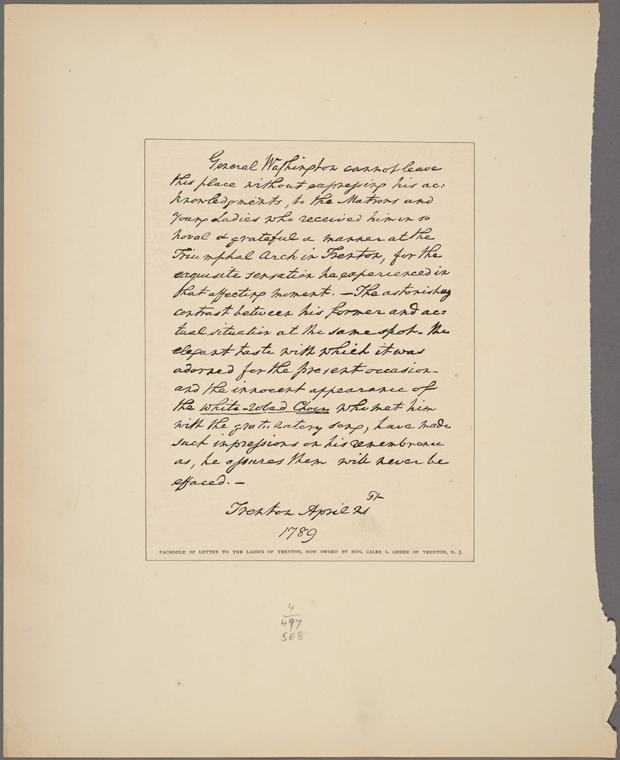 General Washington cannot leave
this place without expressing his ac:
knowledgments, to the Matrons and
Young Ladies who received him in so
novel & grateful a manner at the
Triumphal Arch in Trenton, for the
exquisite sensation he experienced in
that affecting moment. — The astonishing
contrast between his former and ac:
tual situation at the same spot – the
elegant taste with which it was
adorned for the present occasion –
and the innocent appearance of
the white-robed Choir who met him
with the gratulatory song, have made
such impressions on his remembrance
as, he assures them will never be
effaced. —
Trenton April 21st
1789
FACSIMILE OF LETTER TO THE LADIES OF TRENTON, NOW OWNED BY MRS. CALEB S. GREEN OF TRENTON, N. J.
4
497
508